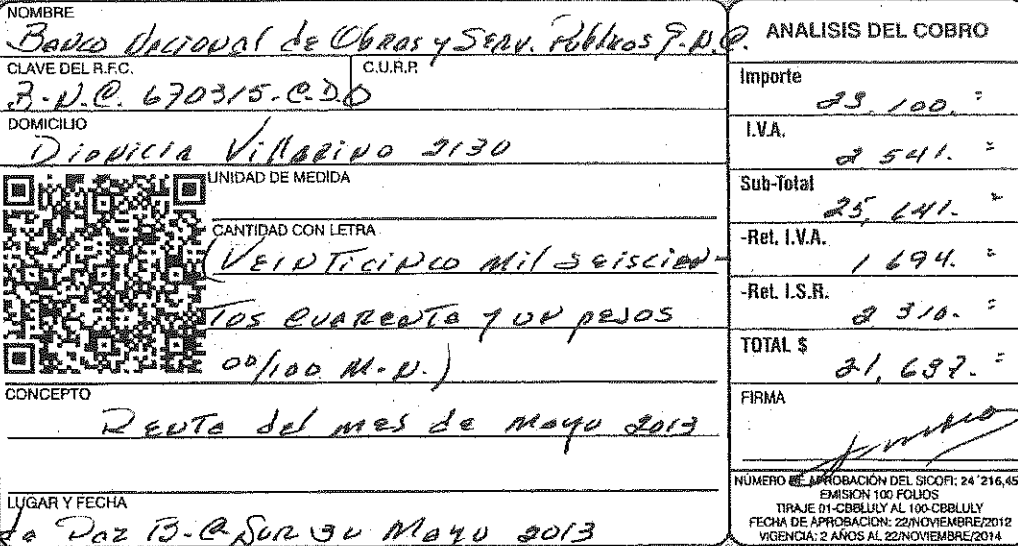 NOMBRE
Banco Nacional de Obras y Serv. Públicos S.N.C.
CLAVE DEL R.F.C. C.U.R.P.
B.N.O. 670315-C.D.0
DOMICILIO
Dionicia Villarino 2130
UNIDAD DE MEDIDA
CANTIDAD CON LETRA
(Veinticinco mil seiscien-
tos cuarenta y un pesos
00/100 M.N.)
CONCEPTO
Renta del mes de Mayo 2013
LUGAR Y FECHA
La Paz B.C. Sur 30 Mayo 2013
ANALISIS DEL COBRO
Importe
23,100.=
I.V.A.
2 541.=
Sub-Total
25,641.=
-Ret. I.V.A.
1 694.=
-Ret. I.S.R.
2 310.=
TOTAL $
21,637.=
FIRMA
NÚMERO DE APROBACIÓN DEL SICOFI: 24´216,45
EMISION 100 FOLIOS
TIRAJE 01-CBBLULY AL 100-CBBLULY
FECHA DE APROBACIÓN: 22/NOVIEMBRE/2012
VIGENCIA: 2 AÑOS AL 22/NOVIEMBRE/2014